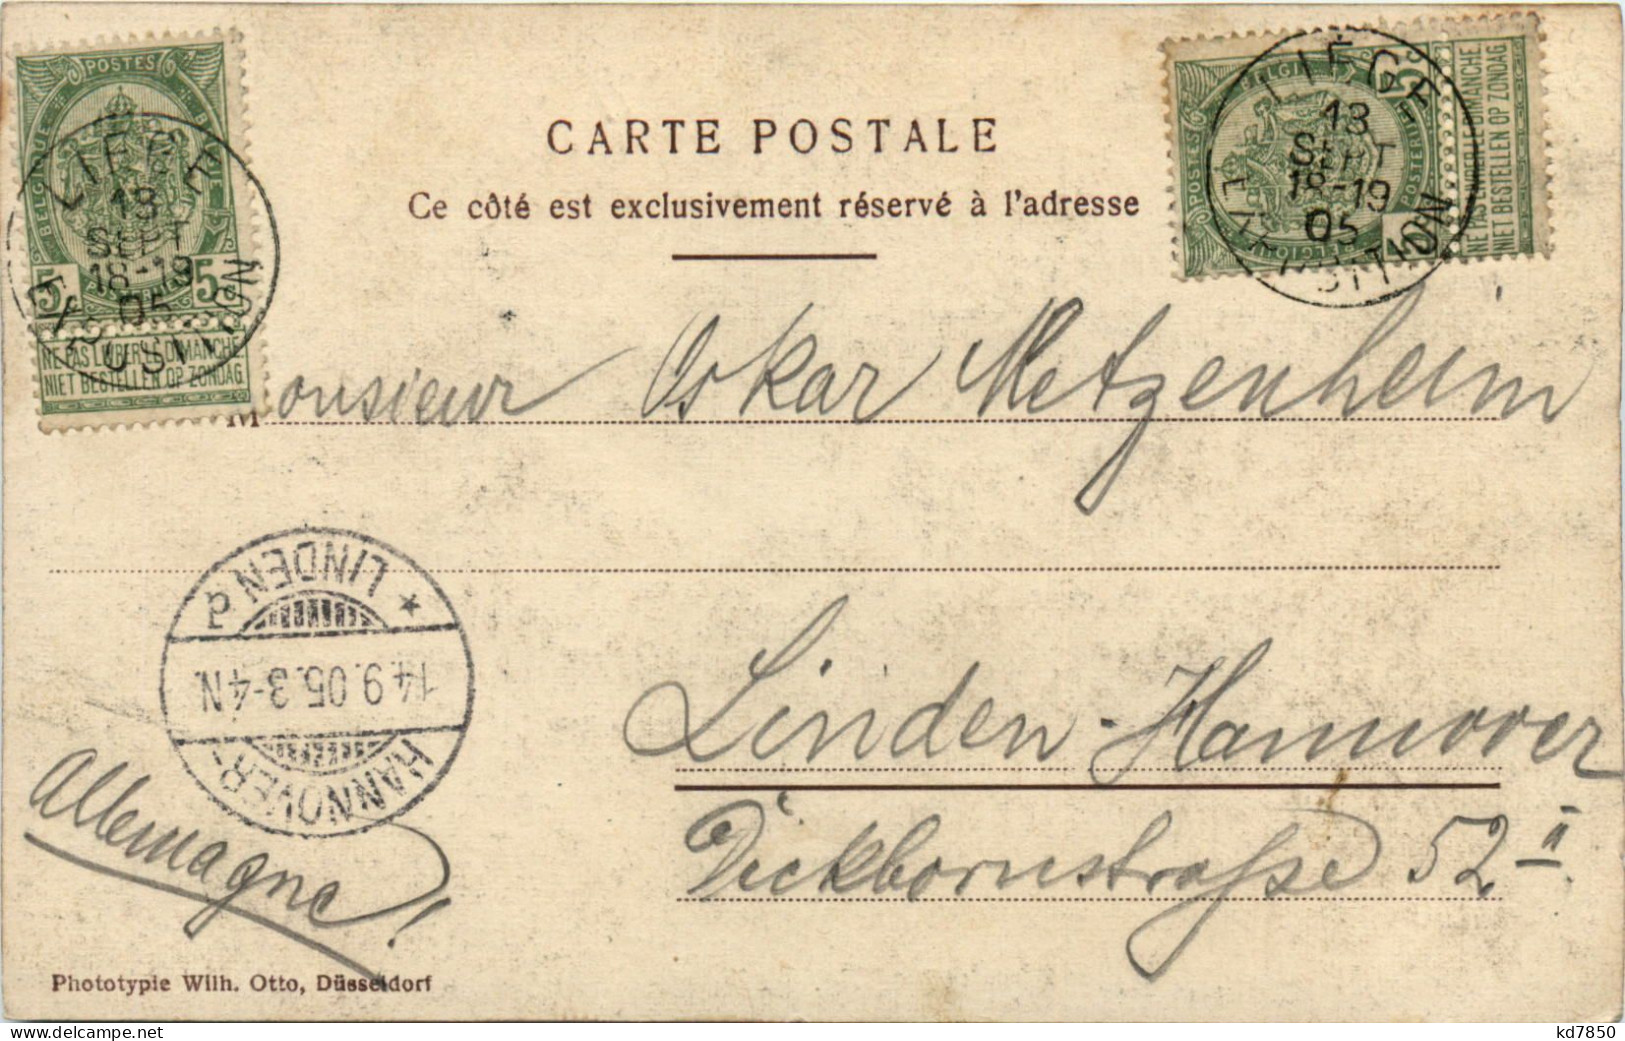 POSTES
BELGIQUE
5 5
NE PAS LIVRER LE DIMANCHE
NIET BESTELLEN OP ZONDAG
LIEGE
13
SEPT
18-19
05
EXPOSITION
POSTES
BELGIQUE
5
NE PAS LIVRER LE DIMANCHE
NIET BESTELLEN OP ZONDAG
LIEGE
13
SEPT
18-19
05
EXPOSITION
CARTE POSTALE
Ce côté est exclusivement réservé à l'adresse
Monsieur Oskar Metzenheim
* LINDEN
14.9.05.3-4N.
HANNOVER-
Linden-Hannover
Dickbornstraße 52 II
Allemagne!
Phototypie Wilh. Otto, Düsseldorf
www.delcampe.net
kd7850